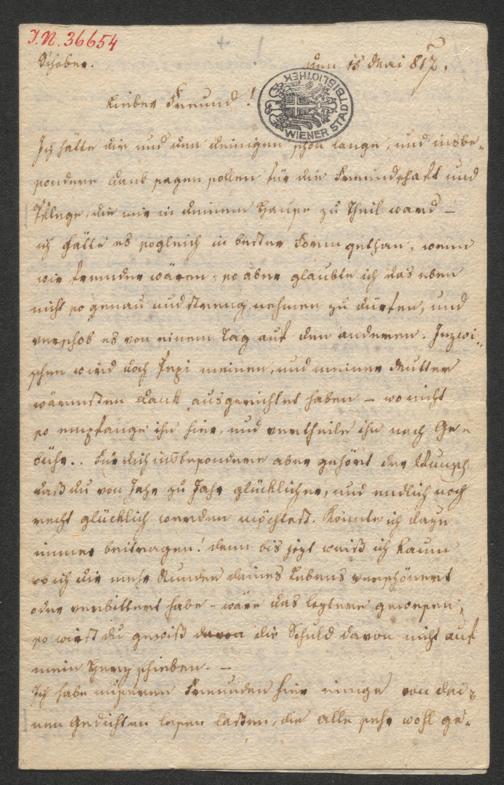 I.N. 36654
Schober.
den 15 Mai 817.
WIENER STADTBIBLIOTHEK
Lieber Freund!
Ich hätte dir und den deinigen schon lange, und insbe-
sondere dank sagen sollen für die Freundschaft und
Pflege, die mir in deinem Hause zu Theil ward –
ich hätte es sogleich in bester Form gethan, wenn
wir fremder wären, so aber glaubte ich das eben
nicht so genau und streng nehmen zu dürfen, und
verschob es von einem Tag auf den anderen. Inzwi-
schen wird doch Pepi meinen, und meiner Mutter
wärmsten dank ausgerichtet haben – wo nicht
so empfange ihn hier, und vertheile ihn nach Ge-
bühr. . Für dich insbesondere aber gehört der Wunsch
daß du von Jahr zu Jahr glücklicher, und endlich noch
recht glücklich werden möchtest. Könnte ich dazu
immer beitragen! denn bis jezt weiß ich kaum
ob ich dir mehr Stunden deines Lebens verschönert
oder verbittert habe – wäre das leztere gewesen,
so wirst du gewiß die Schuld davon nicht auf
mein Herz schieben. –
Ich habe unseren Freunden hier einige von dei-
nen Gedichten lesen lassen, die alle sehr wohl ge-